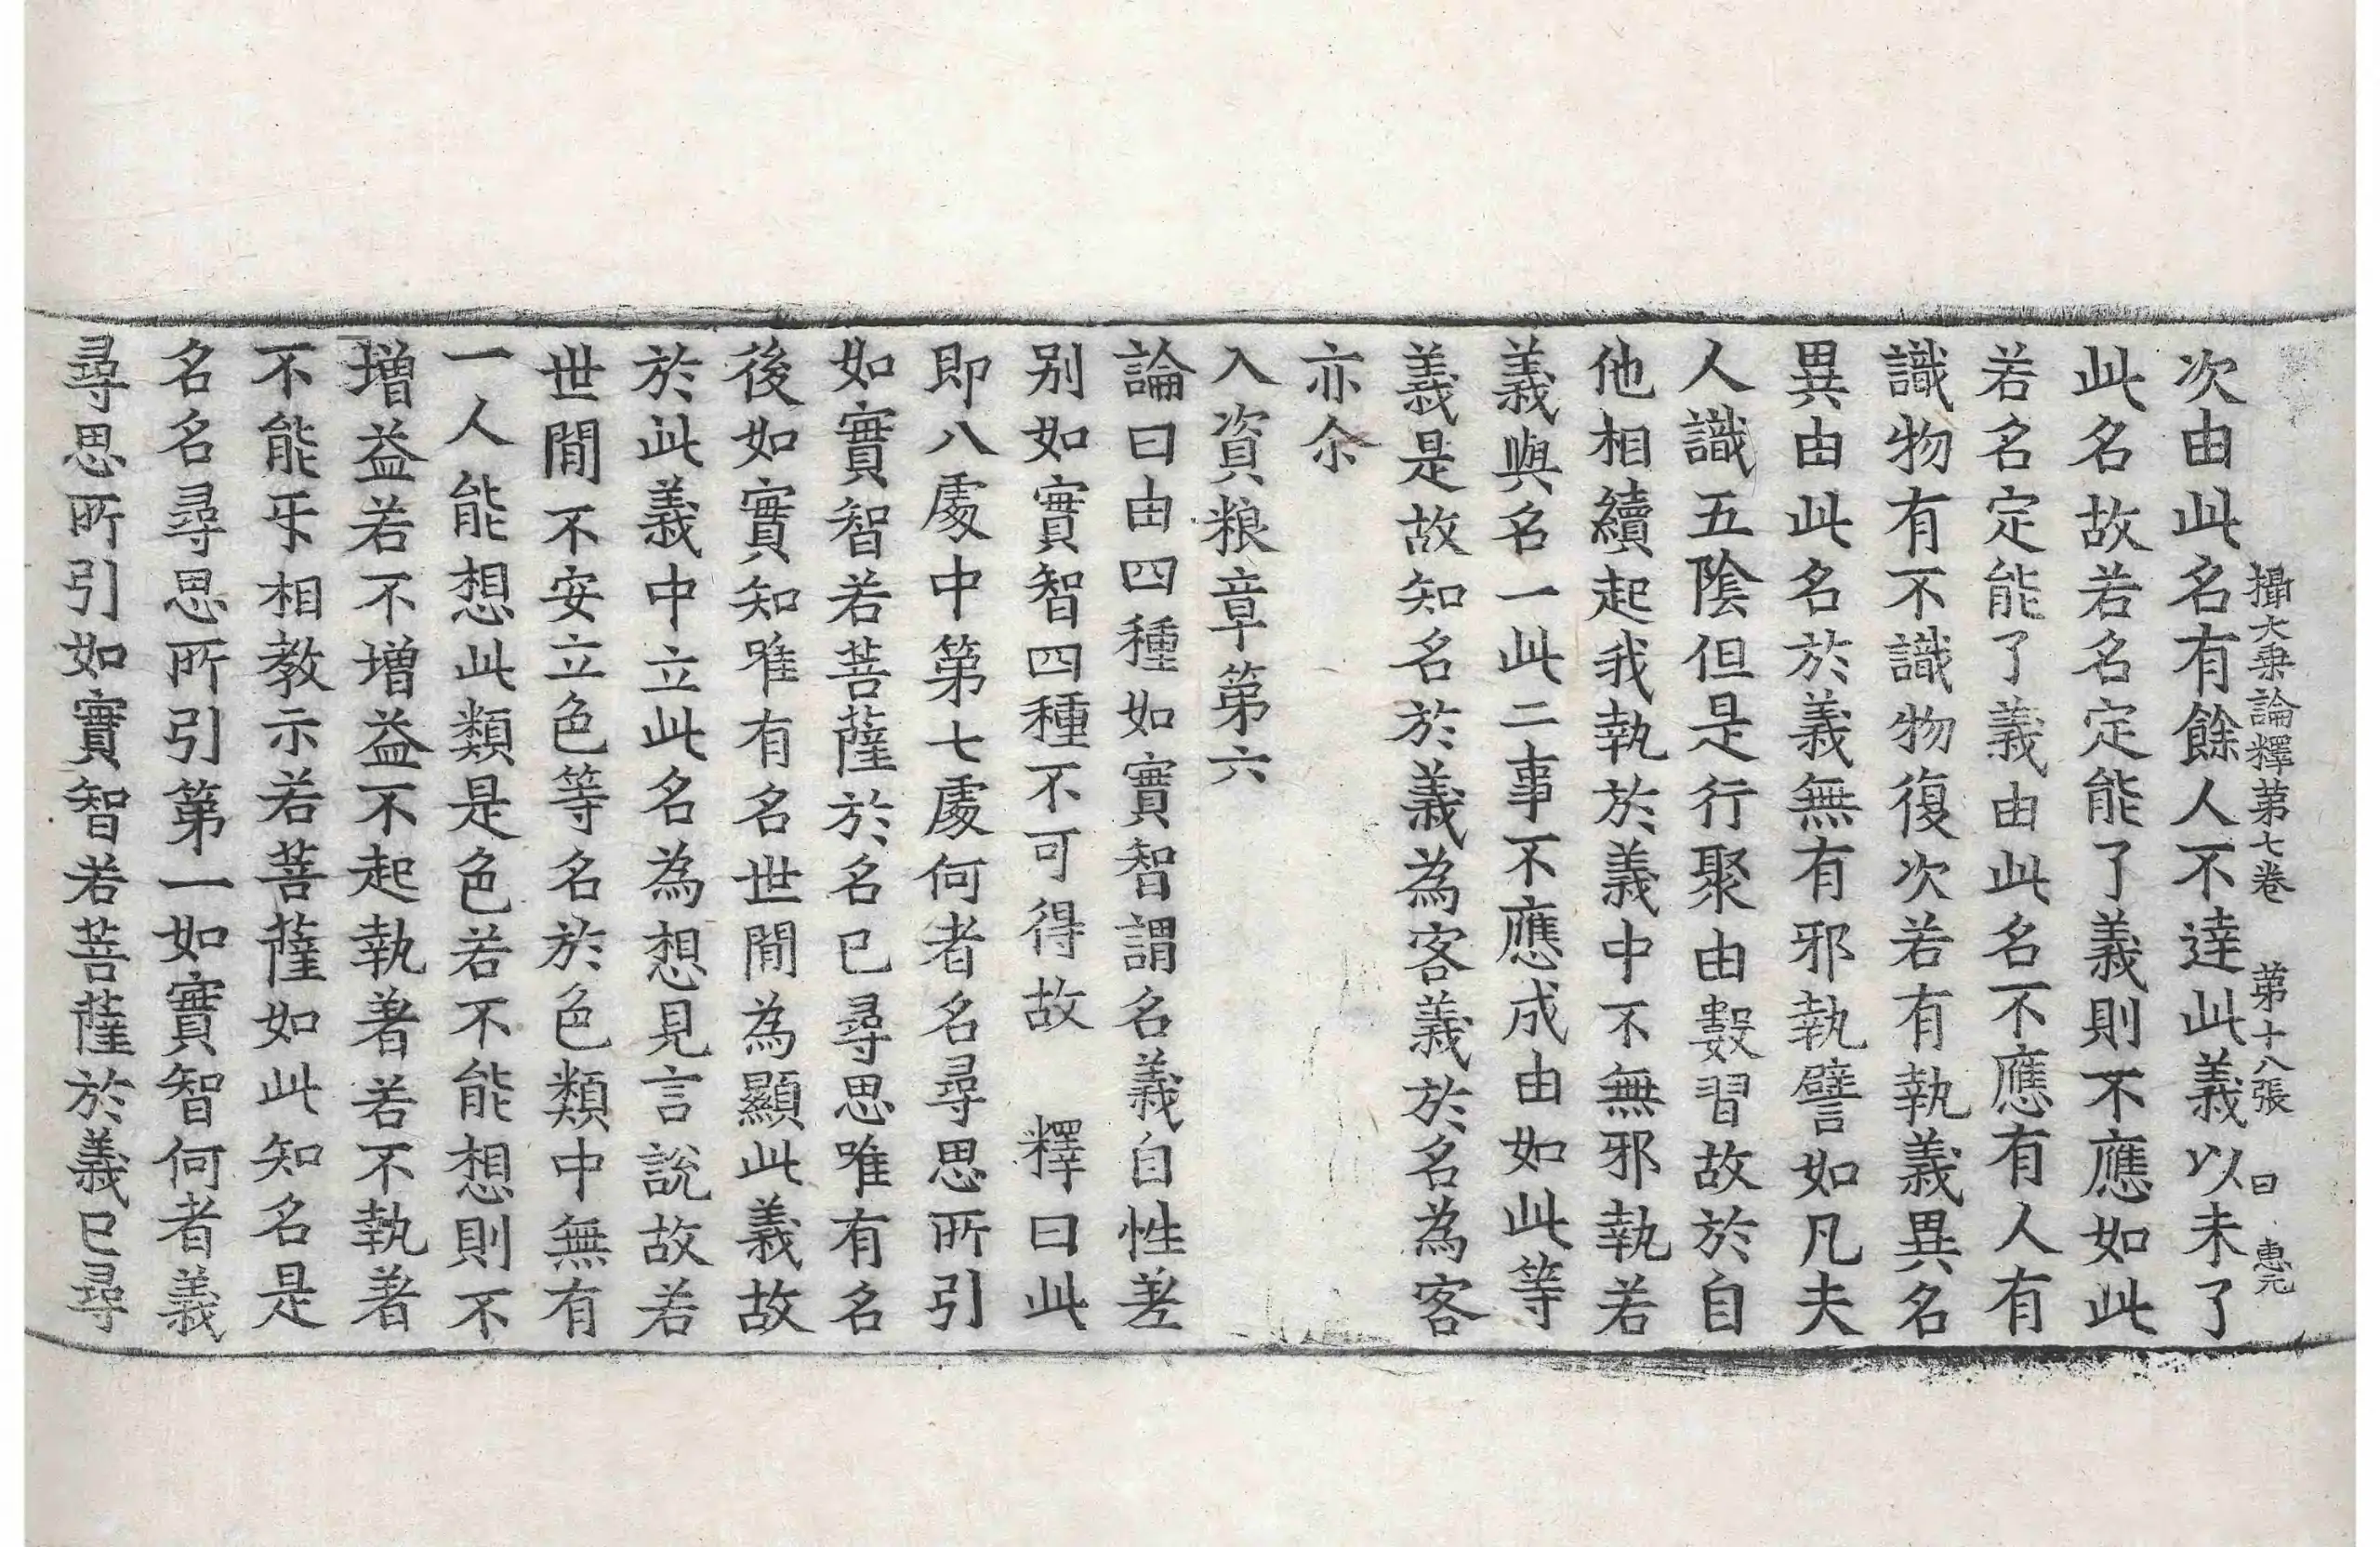 攝大乗論釋第七卷　第十八張　曰　惠元
次由此名有餘人不達此義以未了
此名故若名定能了義則不應如此
若名定能了義由此名不應有人有
識物有不識物復次若有執義異名
異由此名於義無有邪執譬如凡夫
人識五陰但是行聚由數習故於自
他相續起我執於義中不無邪執若
義與名一此二事不應成由如此等
義是故知名於義為客義於名為客
亦尒
入資粮章第六
論曰由四種如實智謂名義自性差
別如實智四種不可得故　釋曰此
即八處中第七處何者名尋思所引
如實智若菩薩於名已尋思唯有名
後如實知唯有名世間為顯此義故
於此義中立此名為想見言說故若
世間不安立色等名於色類中無有
一人能想此類是色若不能想則不
增益若不增益不起執著若不執著
不能㸦相教示若菩薩如此知名是
名名尋思所引第一如實智何者義
尋思所引如實智若菩薩於義已尋